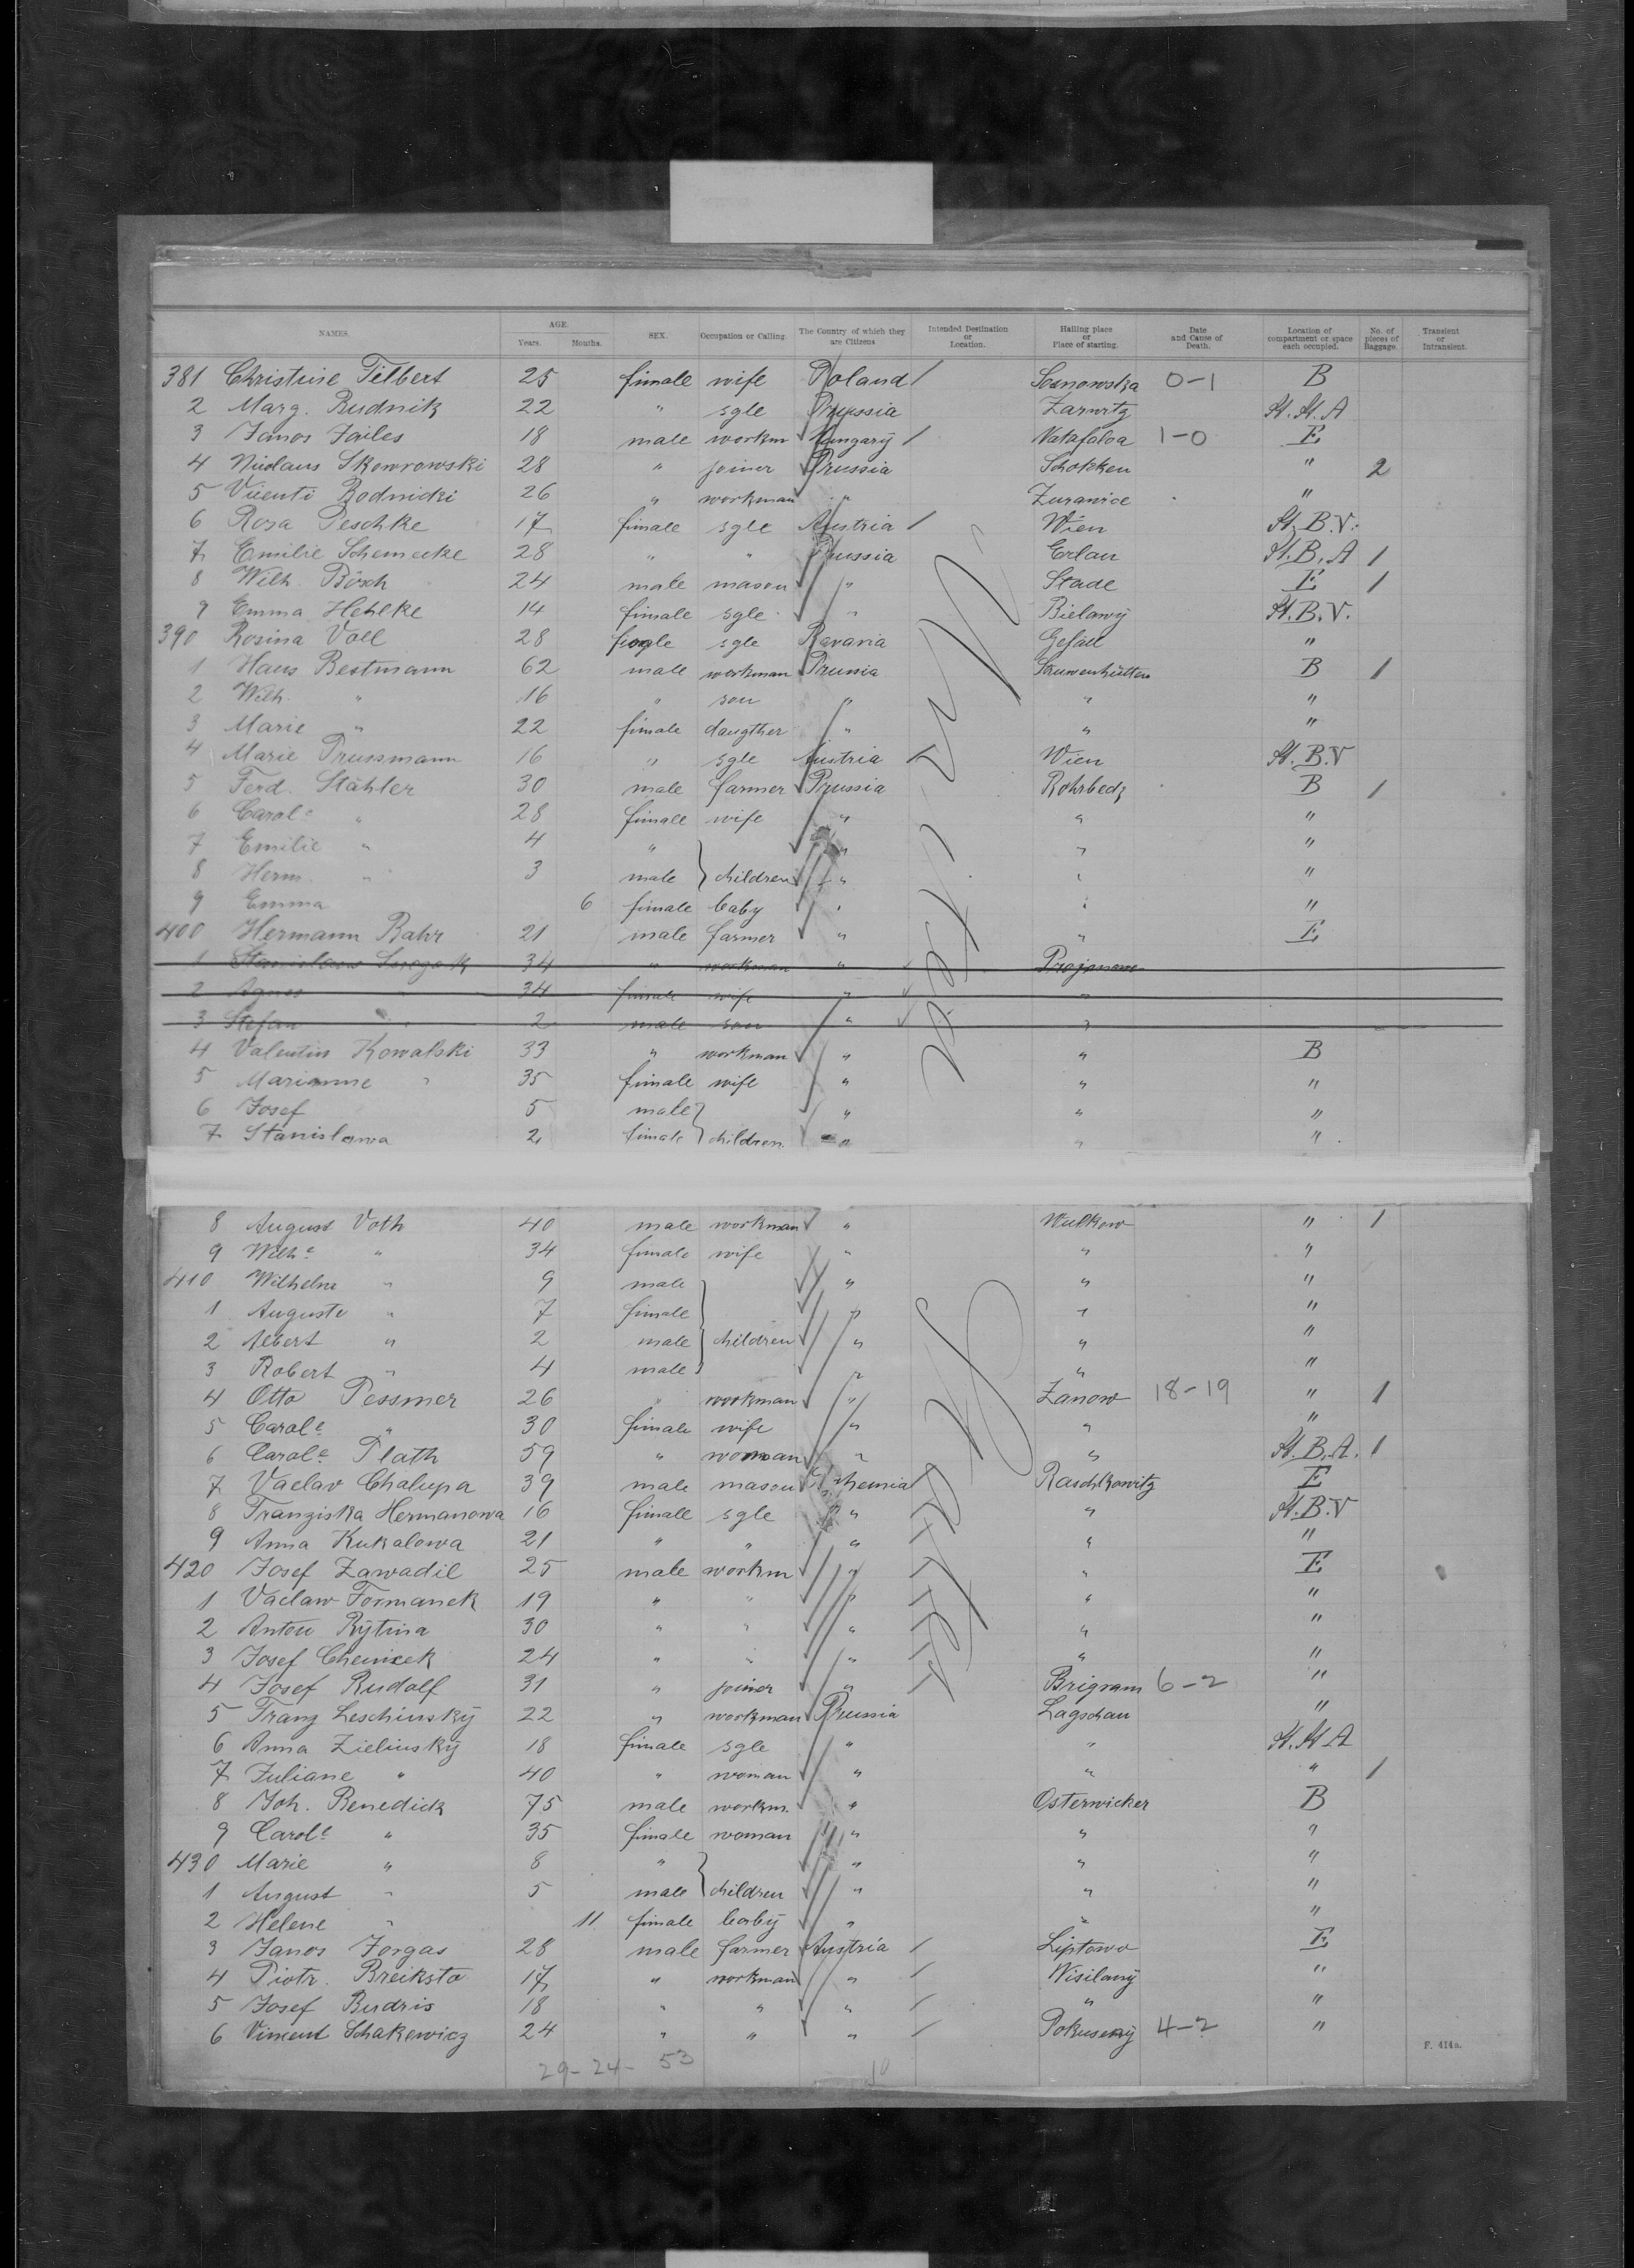 NAMES. AGE. Years. Months. SEX. Occupation or Calling. The Country of which they are Citizens Intended Destination or Location. Hailing place or Place of starting. Date and Cause of Death. Location of compartment or space each occupied. No. of pieces of Baggage. Transient or Intransient.
381 Christine Tilbert 25 female wife Poland / Sosnowska 0-1 B
2 Marg. Budnik 22 " sgle Prussia Zarnritz St. St. A
3 Janos Jailes 18 male workm Hungary / Natafalva 1-0 E
4 Nicolaus Skowrowski 28 " joiner Prussia Schokken " 2
5 Vicenti Bodnicki 26 " workman " Zuranice "
6 Rosa Peschke 17 female sgle Austria / Wien St. B.V.
7 Emilie Schemecke 28 " " Prussia Erlau St. B. A 1
8 Wilh. Bösch 24 male mason " Stade E 1
9 Emma Hehlke 14 female sgle " Bielawy St. B. V.
390 Rosina Voll 28 sgle Bavaria Gefäll "
1 Hans Bestmann 62 male workman Prussia Struvenhütten B 1
2 Wilh. " 16 " son " " "
3 Marie " 22 female daugther " " "
4 Marie Prussmann 16 " sgle Austria Wien St. B.V
5 Ferd. Stähler 30 male farmer Prussia Rohrbeck B 1
6 Carole " 28 female wife " " "
7 Emilie " 4 " " " "
8 Herm. " 3 male children " " "
9 Emma 6 female baby " " "
400 Hermann Bahr 21 male farmer " " E
1 Stanislaus 34 " workman "
2 Agnes " 34 female wife " "
3 Stefan " 2 male son " "
4 Valentin Kowalski 33 " workman " " B
5 Marianne " 35 female wife " " "
6 Josef 5 male " " "
7 Stanislawa 2 female children " " "
8 August Voth 40 male workman " Wulkow " 1
9 Wilhe " 34 female wife " " "
410 Wilhelm " 9 male " " "
1 Auguste " 7 female " " "
2 Albert " 2 male children " " "
3 Robert " 4 male " " "
4 Otto Pessmer 26 " workman " Zanow 18-19 " 1
5 Carole " 30 female wife " " "
6 Carole Plath 59 " woman " " St. B. A. 1
7 Vaclav Chalupa 39 male mason Raschkowitz E
8 Franziska Hermanowa 16 female sgle " " St. B.V
9 Anna Kukalowa 21 " " " " "
420 Josef Zawadil 25 male workm " " E
1 Vaclaw Formanek 19 " " " " "
2 Anton Rytina 30 " " " " "
3 Josef 24 " " " " "
4 Josef Rudolf 31 " joiner " Brigram 6-2 "
5 Franz Leschinsky 22 " workman Prussia Lagschau "
6 Anna Zielinsky 18 female sgle " " St. St A
7 Juliane " 40 " woman " " " 1
8 Joh. Benedick 75 male workm. " Osterwicker B
9 Carole " 35 female woman " " "
430 Marie " 8 " " " "
1 August " 5 male children " " "
2 Helene " 11 female baby " " "
3 Janos Forgas 28 male farmer Austria / Liptowo E
4 Piotr. Breiksto 17 " workman " / Wisilany "
5 Josef Budris 18 " " " / " "
6 Vincent Schakewicz 24 " " " / Pokuseny 4-2 "
F. 414a.
29-24- 53 10